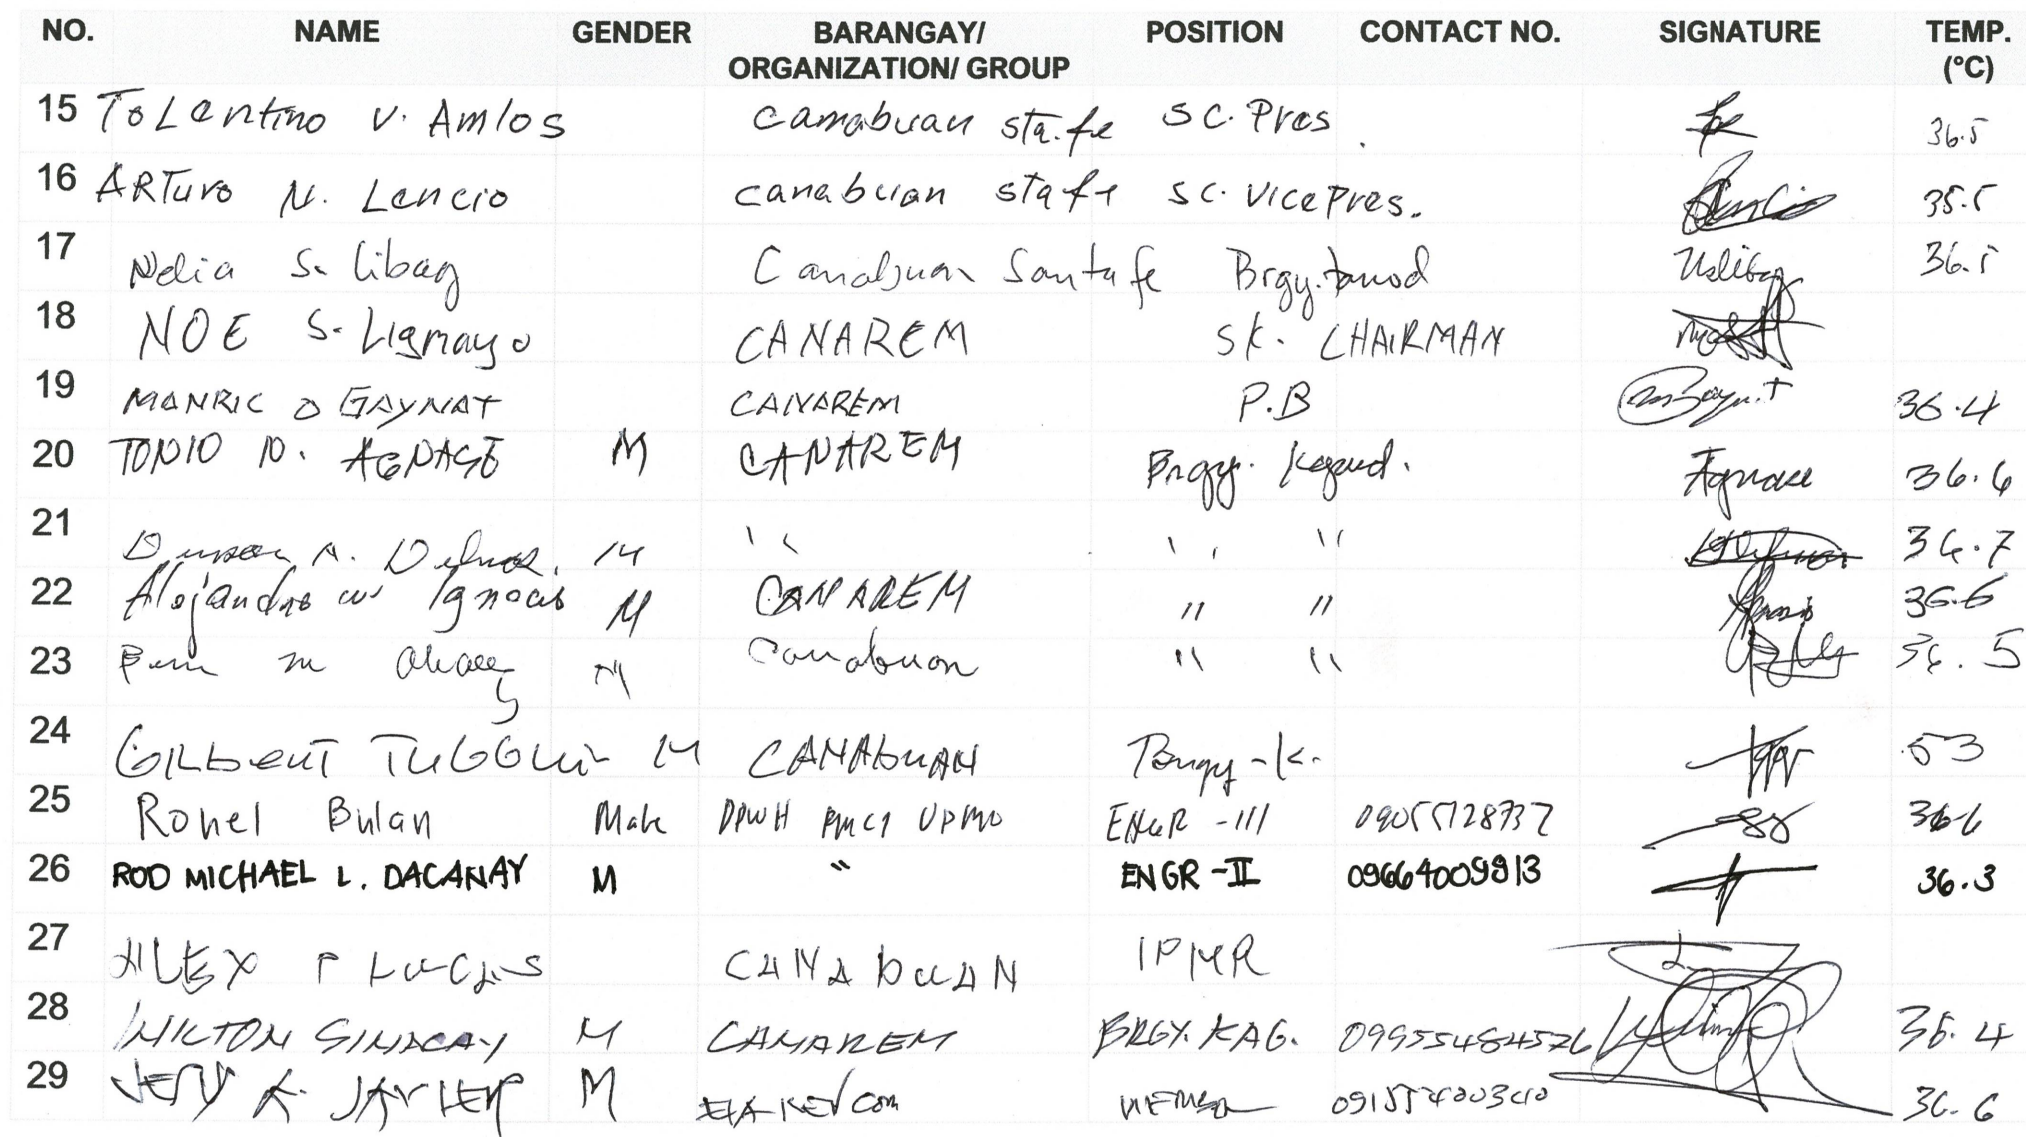 NO. NAME GENDER BARANGAY/ ORGANIZATION/ GROUP POSITION CONTACT NO. SIGNATURE TEMP. (°C)
15 Tolentino V. Amlos Camabuan Sta.fe SC. Pres. 36.5
16 ARTuro N. Lencio canabuan stafe SC. Vice Pres.
17 Nelia S. Libag Canabuan Santa fe Brgy. tanod 36.5
18 NOE S. Ligmayo CANAREM SK. CHAIRMAN
19 MANRIC D GAYNAT CANAREM P.B 36.4
20 TONIO N. AGNASE M CANAREM Brgy. Kagawad. Agnase 36.6
21 A. M " " " 36.7
22 Alejandro Ignacio M CANAREM " " 36.6
23 M Canabuan " " 36.5
24 GILbeRT M CANAbuAN Brgy-K. 53
25 Ronel Bulan Male DPWH UPMO ENGR -III 36.6
26 ROD MICHAEL L. DACANAY M " ENGR -II 09664009913 36.3
27 ALEX P LUCAS CANAbuAN IPMR
28 WILTON SINACAY M CANAREM BRGY. KAG. 09955484526 36.4
29 JERY A. JAVIER M 36.6